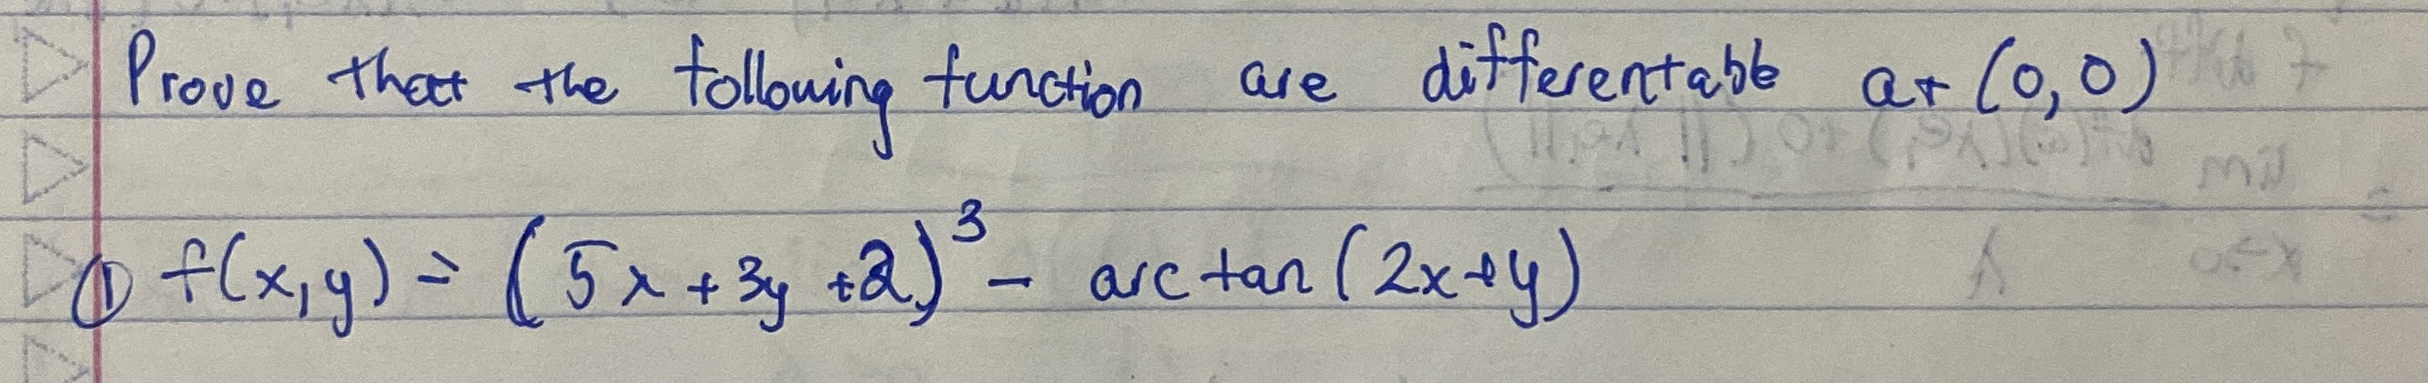 Prove that the following function are differentable at (0,0)
① f(x,y) = (5x+3y+2)³ - arc tan(2x+y)